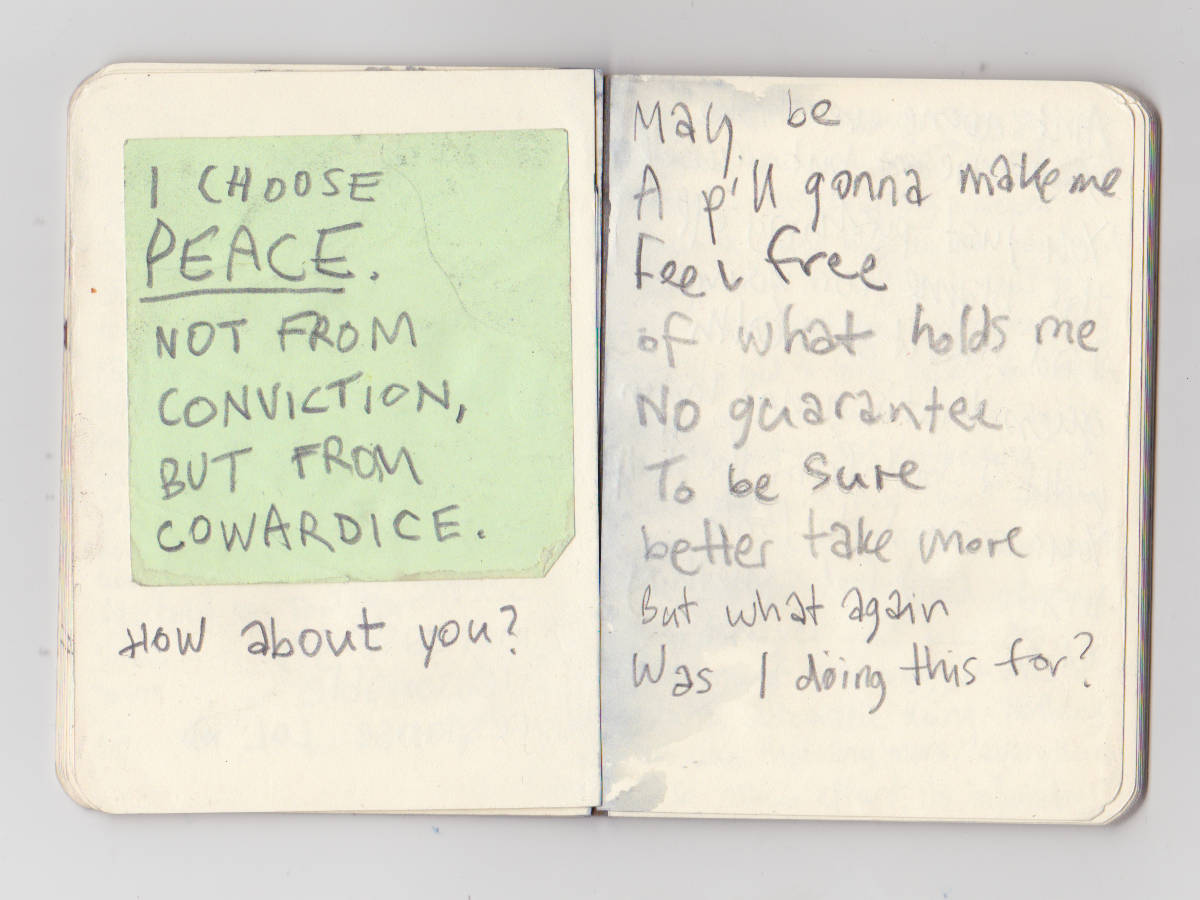 I CHOOSE
PEACE.
NOT FROM
CONVICTION,
BUT FROM
COWARDICE.
How about you?
May be
A pill gonna make me
Feel free
of what holds me
No guarantee
To be sure
better take more
But what again
Was I doing this for?